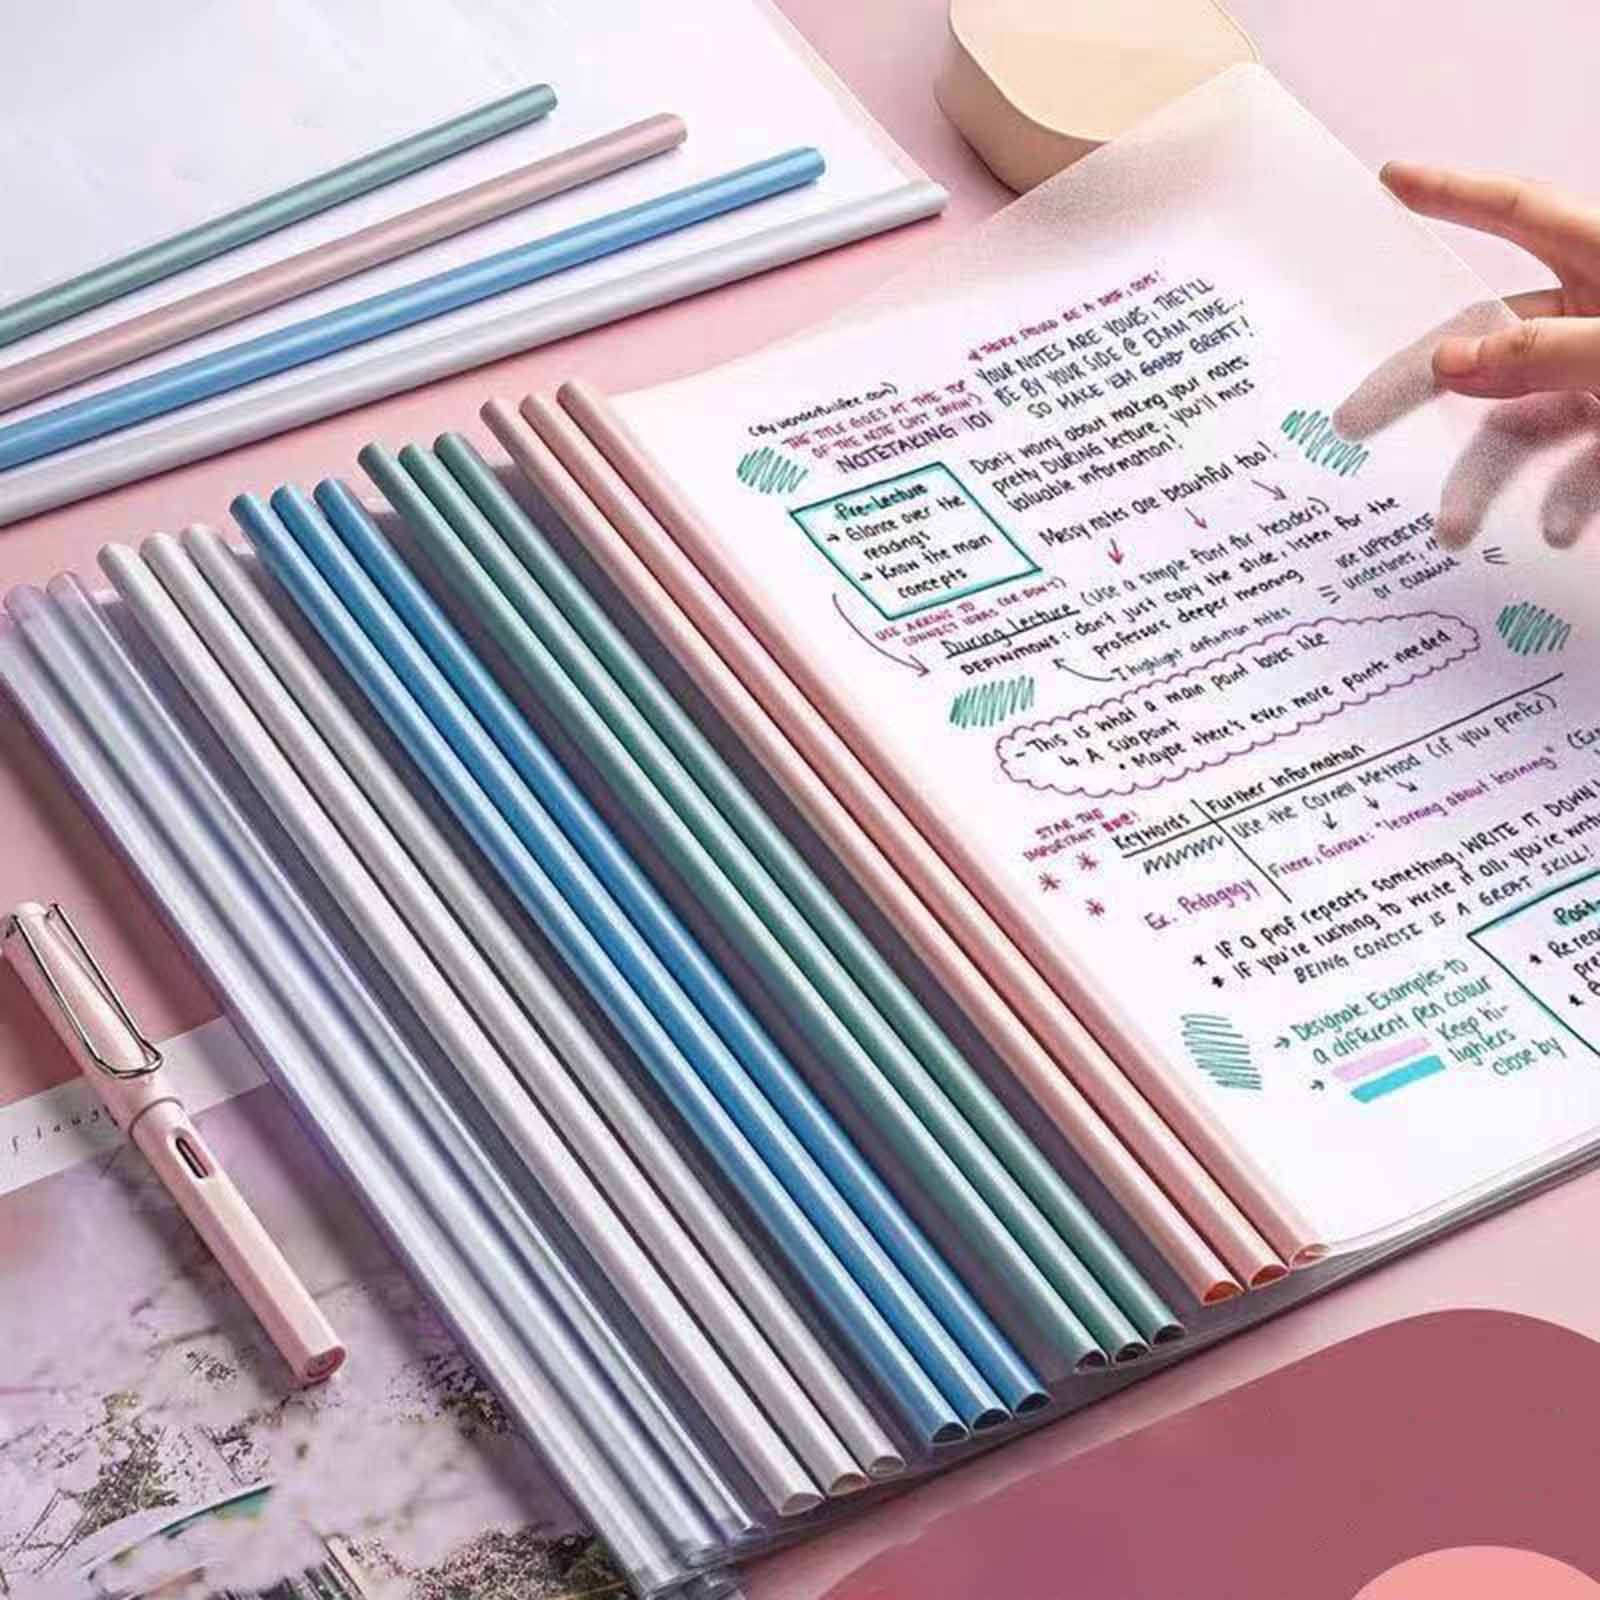 (By wonderfulifee.com)
THE TITLE GOES AT THE TOP
OF THE NOTE (NOT SAYIN')
NOTETAKING 101
THERE SHOULD BE A DATE, OOPS!
YOUR NOTES ARE YOURS, THEY'LL
BE BY YOUR SIDE @ EXAM TIME...
SO MAKE 'EM GOOD GREAT!
Don't worry about making your notes
pretty DURING lecture, you'll miss
valuable information!
Messy notes are beautiful too!
Pre-Lecture
→ Glance over the
readings
→ Know the main
concepts
USE ARROWS TO
CONNECT IDEAS (OR DON'T)
During Lecture (Use a simple font for headers)
DEFINITIONS: don't just copy the slide, listen for the
professors deeper meaning
I highlight definition titles
USE UPPERCASE
underlines,
or cursive
- This is what a main point looks like
↳ A subpoint
• Maybe there's even more points needed
STAR THE
IMPORTANT
Keywords
Further Information
Use the Cornell Method (if you prefer)
Ex. Pedagogy
Friere, Giroux: "learning about learning"
* If a prof repeats something, WRITE IT DOWN
* IF you're rushing to write it all, you're
BEING CONCISE IS A GREAT SKILL!
→ Designate Examples to
a different pen colour
→ Keep hi-
lighters
close by